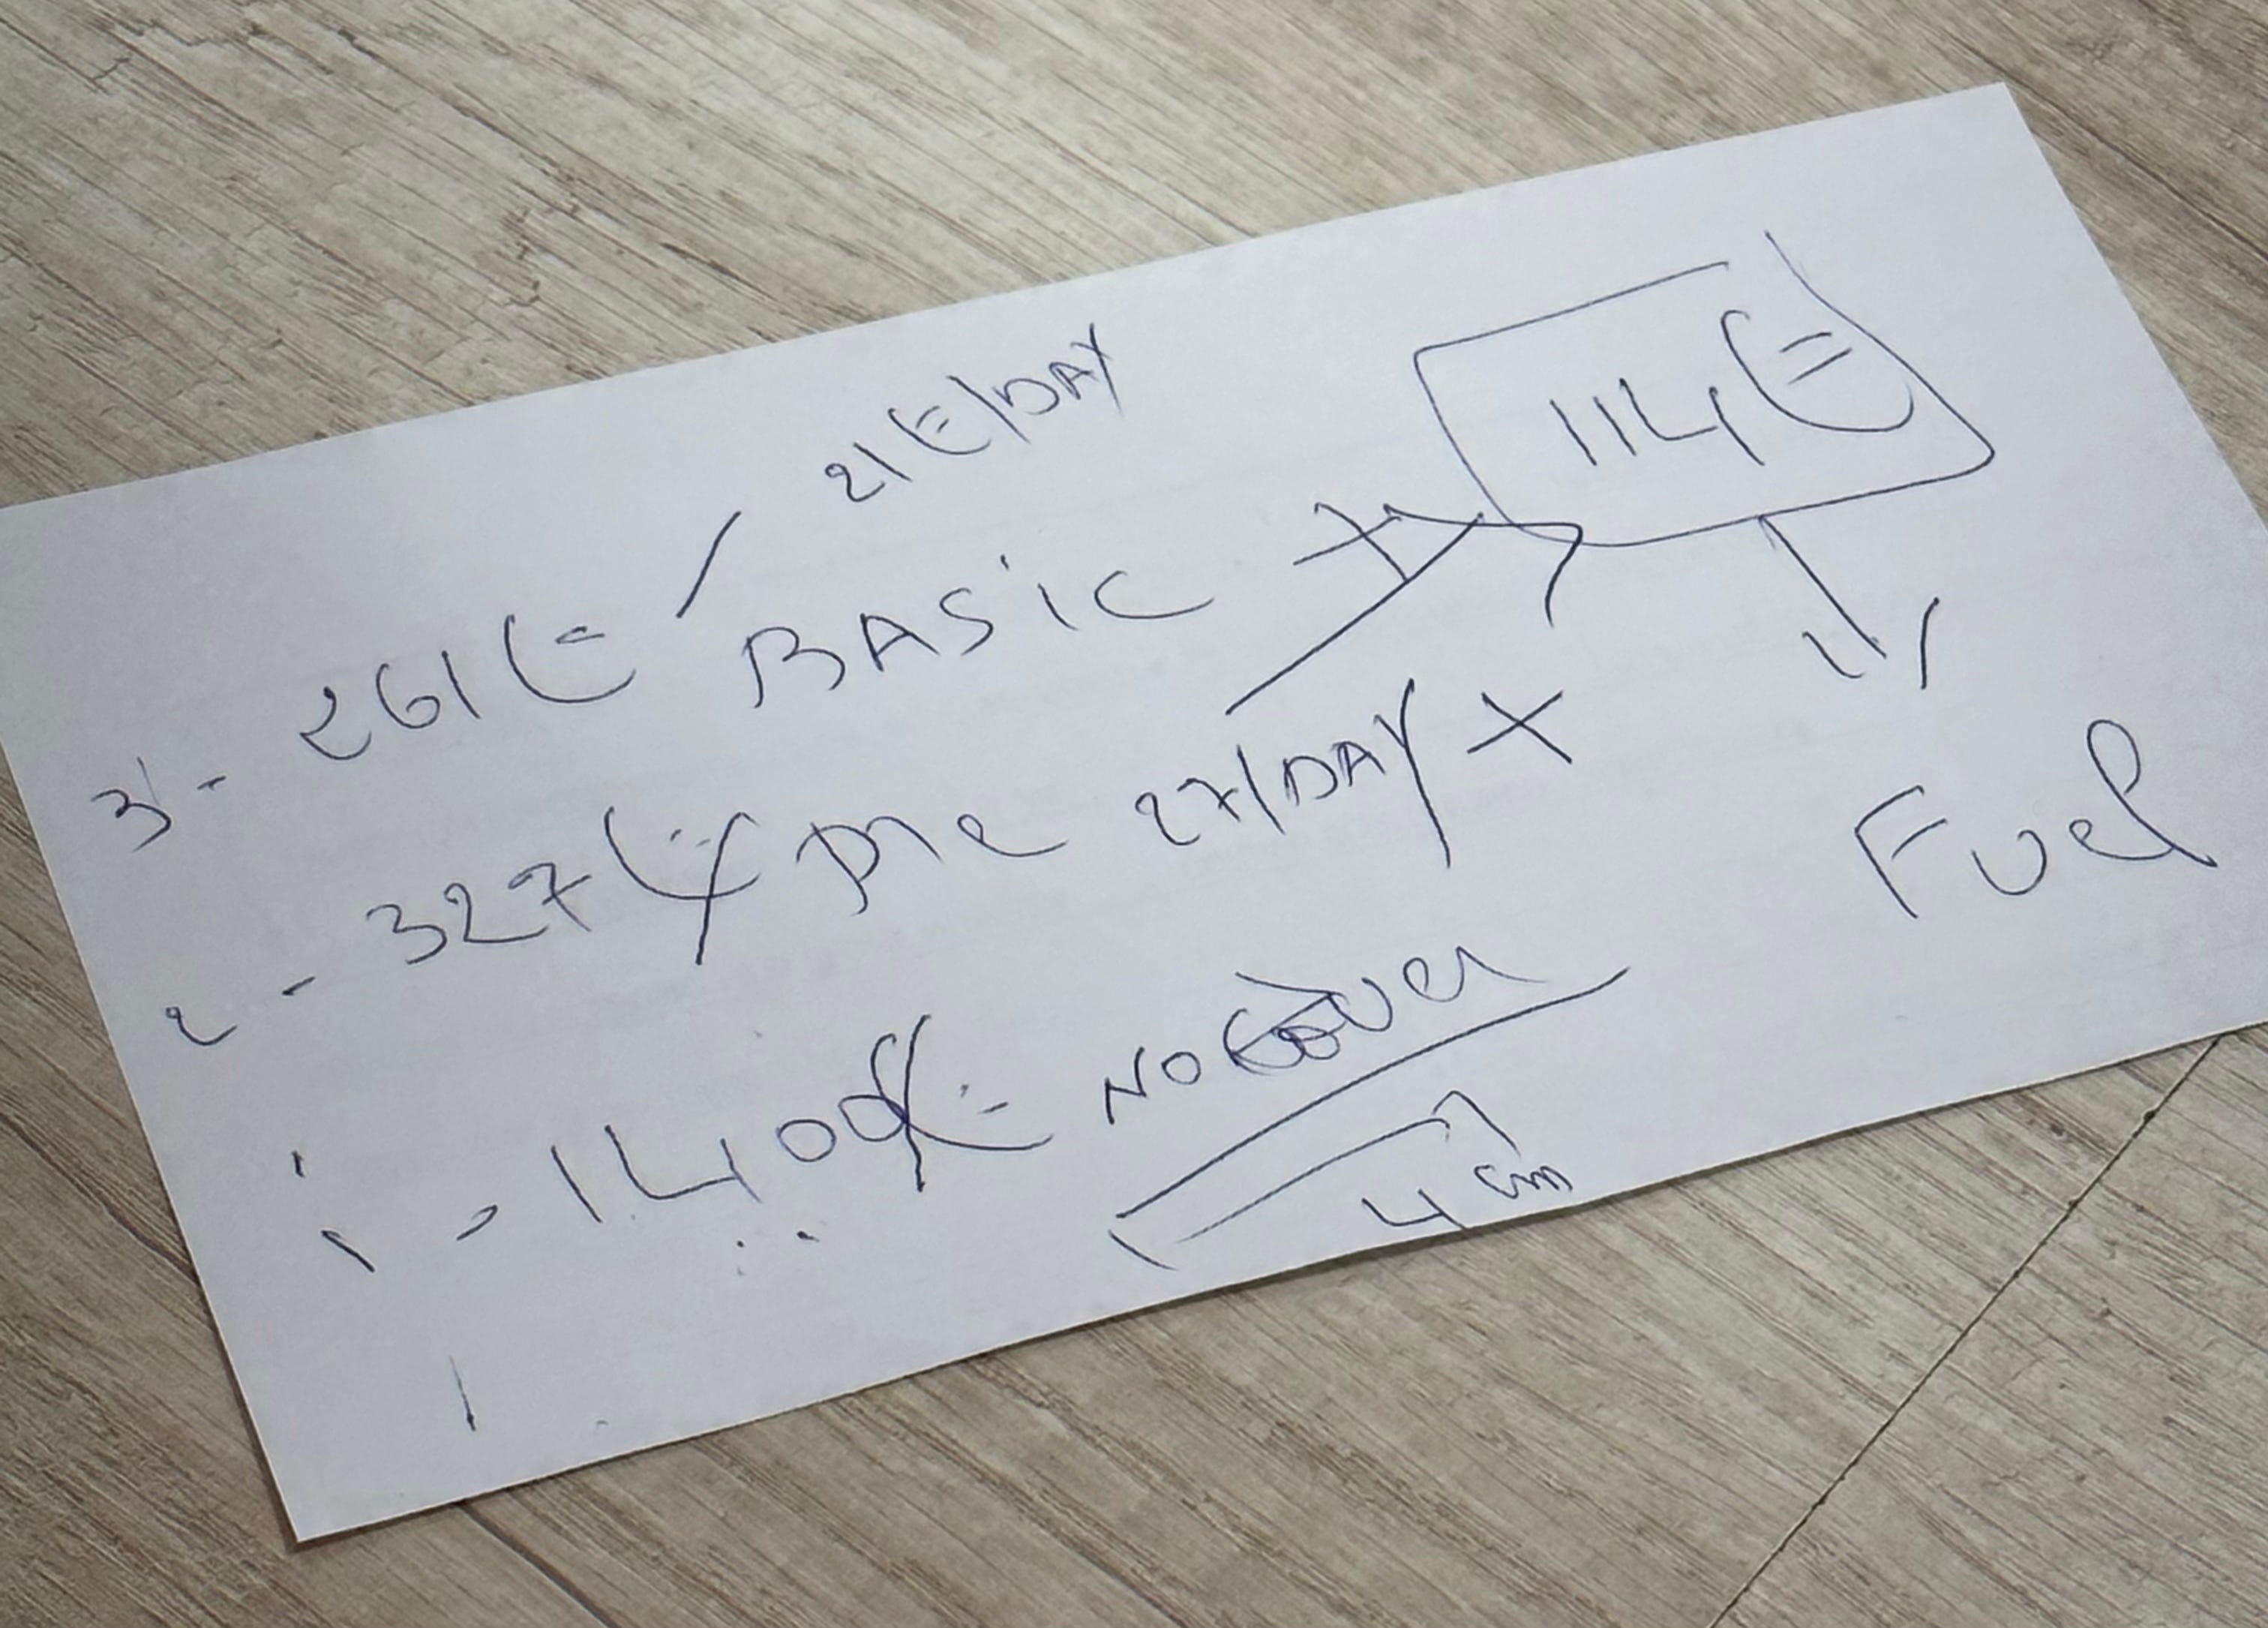 21€/DAY
114€
3 - 261€ BASIC +
2 - 327€ 27/DAY X
Fuel
1 - 1400€ NO COVER
4 cm